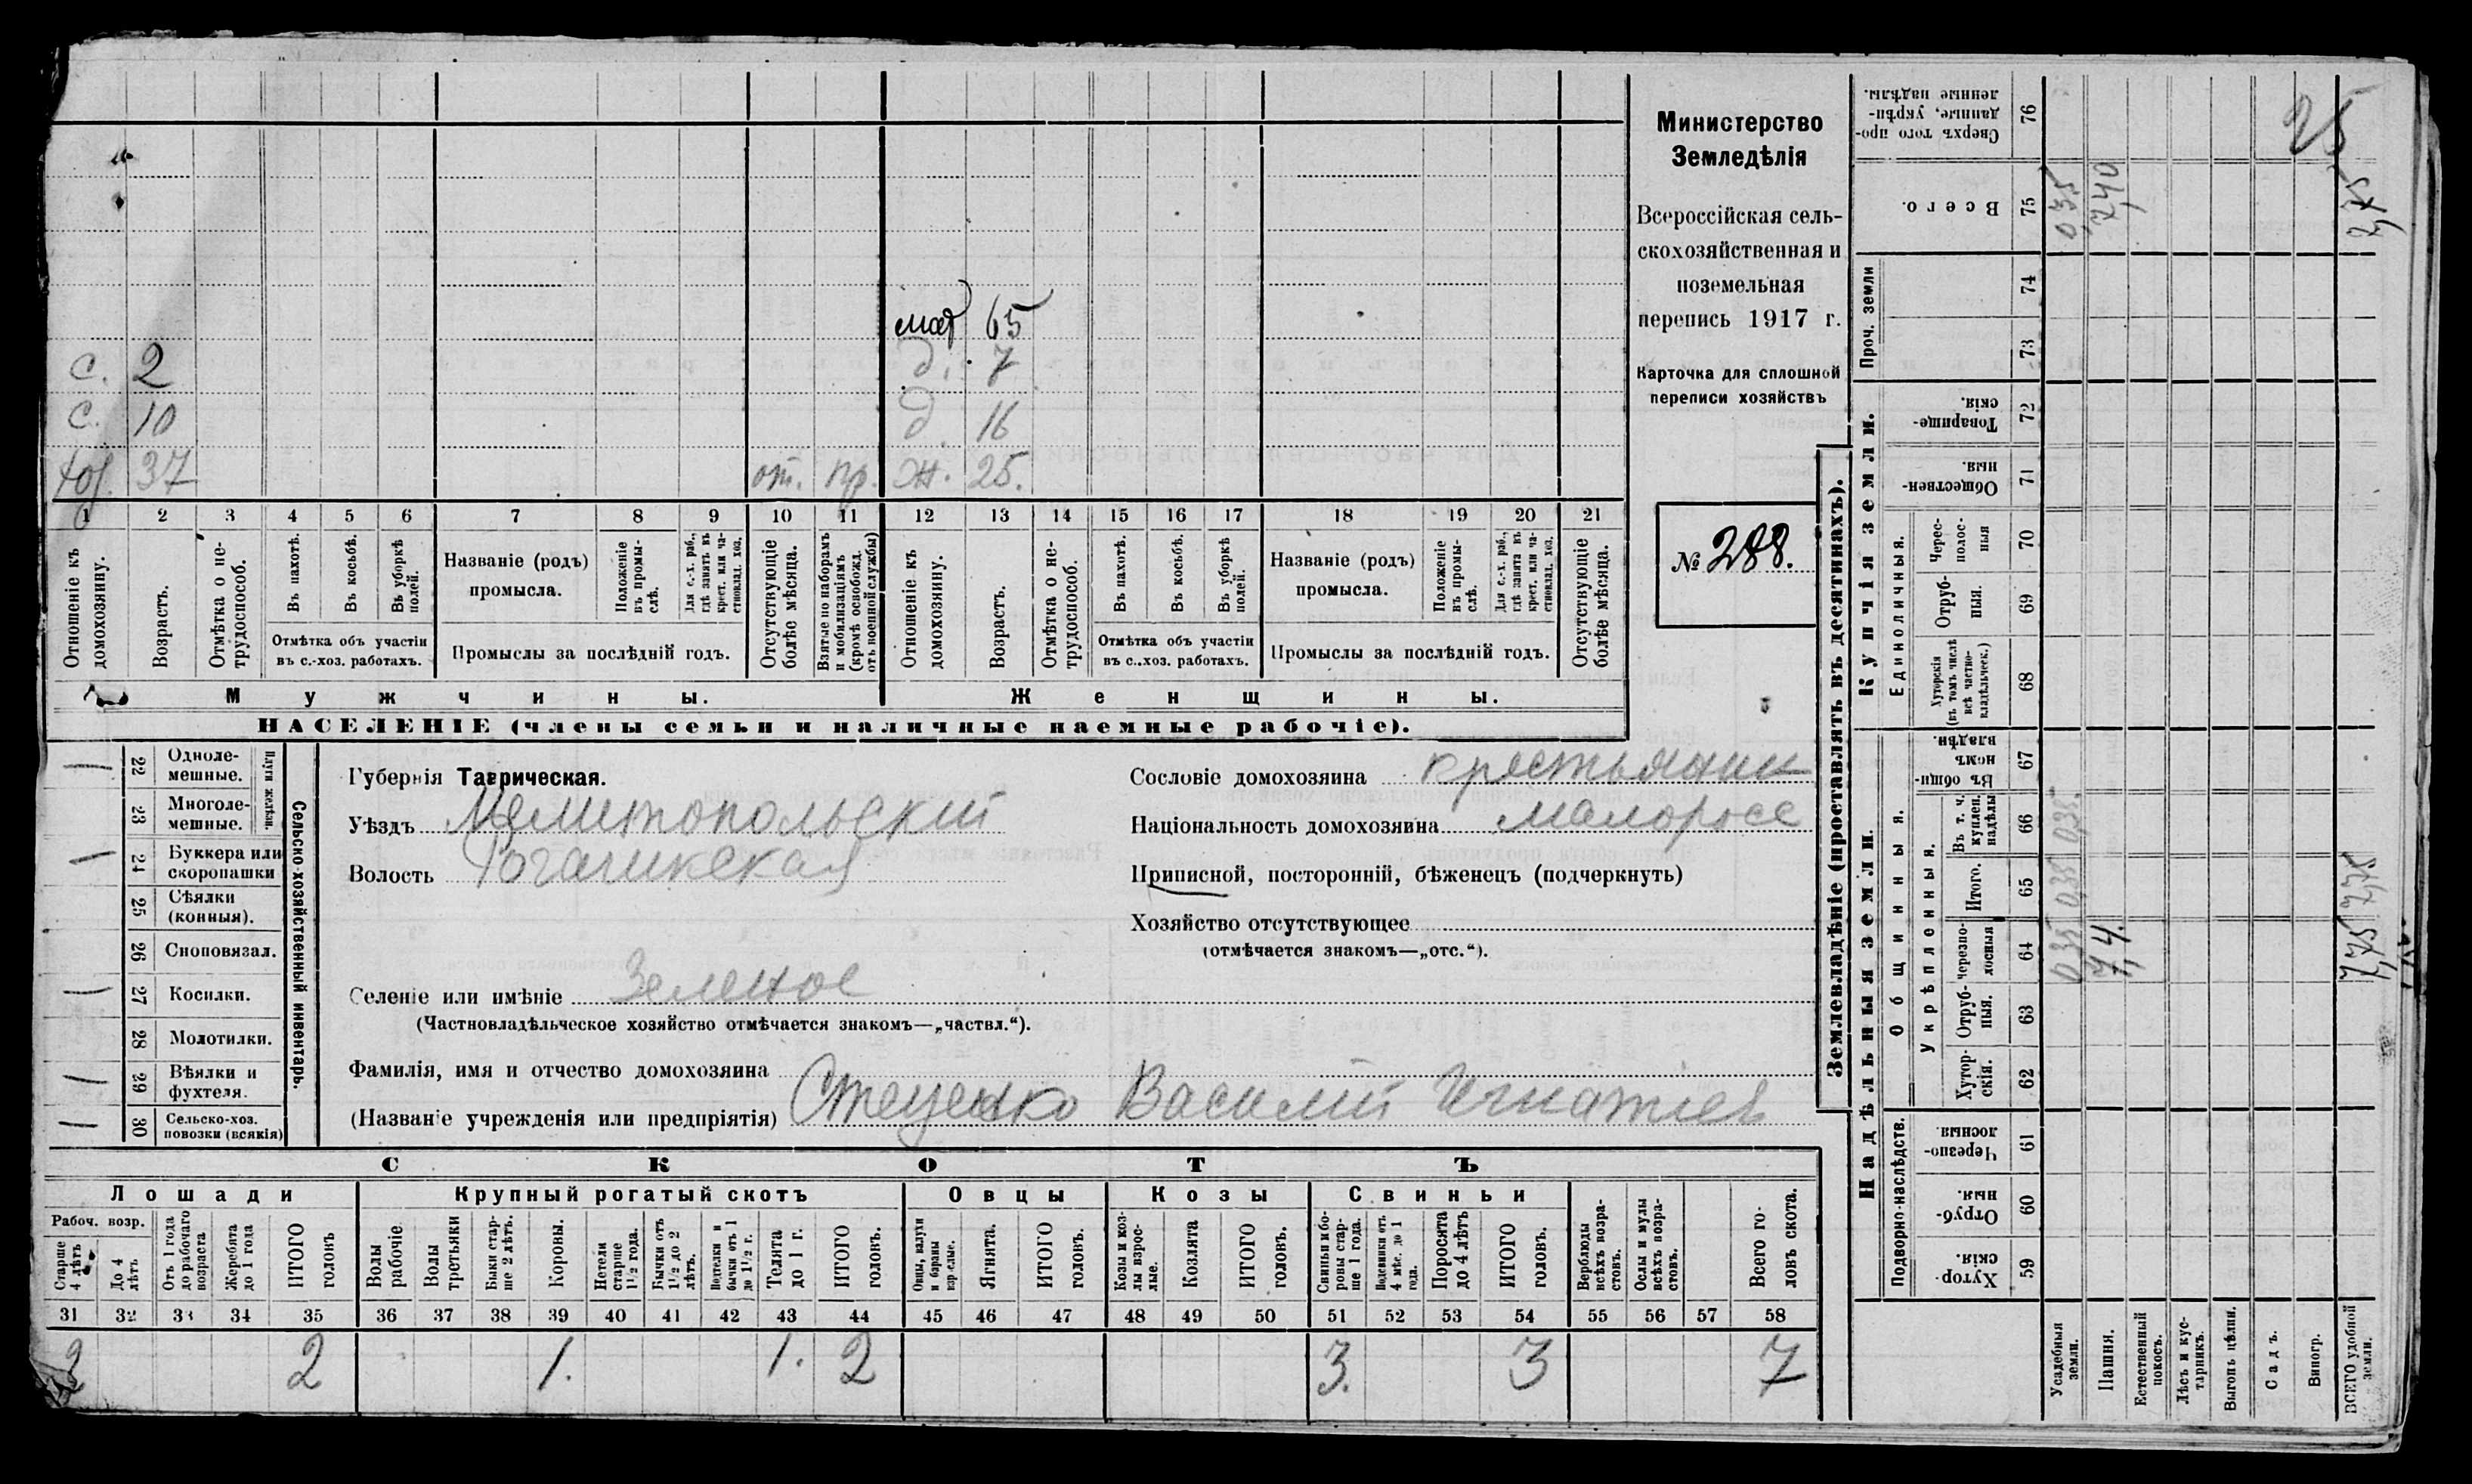 мат 65
с. 2 д. 7
с. 10 д. 16
хоз. 37 от. пр. ж. 25.
1 2 3 4 5 6 7 8 9 10 11 12 13 14 15 16 17 18 19 20 21
Отношеніе къ домохозяину.
Возрастъ.
Отмѣтка о не-трудоспособ.
Въ пахотѣ.
Въ косьбѣ.
Въ уборкѣ полей.
Отмѣтка объ участіи въ с.-хоз. работахъ.
Названіе (родъ) промысла.
Положеніе въ промы-слѣ.
Для с.-х. раб., гдѣ занятъ въ крест. или ча-стновлад. хоз.
Промыслы за послѣдній годъ.
Отсутствующіе болѣе мѣсяца.
Взятые по наборамъ и мобилизаціямъ (кромѣ освобожд. отъ военной службы)
Отношеніе къ домохозяину.
Возрастъ.
Отмѣтка о не-трудоспособ.
Въ пахотѣ.
Въ косьбѣ.
Въ уборкѣ полей.
Отмѣтка объ участіи въ с.-хоз. работахъ.
Названіе (родъ) промысла.
Положеніе въ промы-слѣ.
Для с.-х. раб., гдѣ занята въ крест. или ча-стновлад. хоз.
Промыслы за послѣдній годъ.
Отсутствующіе болѣе мѣсяца.
Мужчины. Женщины.
НАСЕЛЕНІЕ (члены семьи и наличные наемные рабочіе).
Министерство
Земледѣлія
Всероссійская сель-
скохозяйственная и
поземельная
перепись 1917 г.
Карточка для сплошной
переписи хозяйствъ
№ 288.
Сельско-хозяйственный инвентарь.
Плуги желѣзн.
22 Одноле-мешные. —
23 Многоле-мешные.
24 Буккера или скоропашки —
25 Сѣялки (конныя).
26 Сноповязал.
27 Косилки. —
28 Молотилки.
29 Вѣялки и фухтеля. —
30 Сельско-хоз. повозки (всякія) —
Губернія Таврическая.
Уѣздъ Мелитопольскій
Волость Рогачикская
Селеніе или имѣніе Зеленое
(Частновладѣльческое хозяйство отмѣчается знакомъ—„частвл.“).
Фамилія, имя и отчество домохозяина
(Названіе учрежденія или предпріятія) Стеценко Василій Игнатіев
Сословіе домохозяина крестьянин
Національность домохозяина малоросс
Приписной, посторонній, бѣженецъ (подчеркнуть)
Хозяйство отсутствующее
(отмѣчается знакомъ—„отс.“).
СКОТЪ
Лошади Крупный рогатый скотъ Овцы Козы Свиньи
Рабоч. возр.
Старше 4 лѣтъ
До 4 лѣтъ
Отъ 1 года до рабочаго возраста
Жеребята до 1 года
ИТОГО головъ
Волы рабочіе
Волы третьяки
Быки стар-ше 2 лѣтъ.
Коровы.
Нетели старше 1½ года.
Бычки отъ 1½ до 2 лѣтъ.
Подтелки и бычки отъ 1 до 1½ г.
Телята до 1 г.
ИТОГО головъ.
Овцы, валухи и бараны взрослые.
Ягнята.
ИТОГО головъ.
Козы и коз-лы взрос-лые.
Козлята
ИТОГО головъ.
Свиньи и бо-ровы стар-ше 1 года.
Подсвинки отъ 4 мѣс. до 1 года.
Поросята до 4 лѣтъ
ИТОГО головъ.
Верблюды всѣхъ возра-стовъ.
Ослы и мулы всѣхъ возра-стовъ.
Всего го-ловъ скота.
31 32 33 34 35 36 37 38 39 40 41 42 43 44 45 46 47 48 49 50 51 52 53 54 55 56 57 58
2 2 1. 1. 2 3. 3 7
Землевладѣніе (проставлять въ десятинахъ).
Надѣльныя земли. Купчія земли. Проч. земли
Подворно-наслѣдств.
Общинныя.
Укрѣпленныя.
Единоличныя.
59 Хутор-скія.
60 Отруб-ныя.
61 Черезпо-лосныя.
62 Хутор-скія.
63 Отруб-ныя.
64 Черезпо-лосныя
65 Итого.
66 Въ т. ч. куплен. надѣлы
67 Въ общин-номъ владѣн.
68 Хуторскія (въ томъ числѣ всѣ частно-владѣльческ.)
69 Отруб-ныя.
70 Черес-полос-ныя
71 Обществен-ныя.
72 Товарище-скія.
73
74
75 Всего.
76 Сверхъ того про-данные, укрѣп-ленные надѣлы.
Усадебныя земли. 0,35 0,35 0,35. 0,35
Пашня. 7,4. 7,40
Естественный покосъ.
Лѣсъ и кус-тарникъ.
Выгонъ цѣлин.
Садъ.
Виногр.
ВСЕГО удобной земли. 7,75 7,75 7,75
25